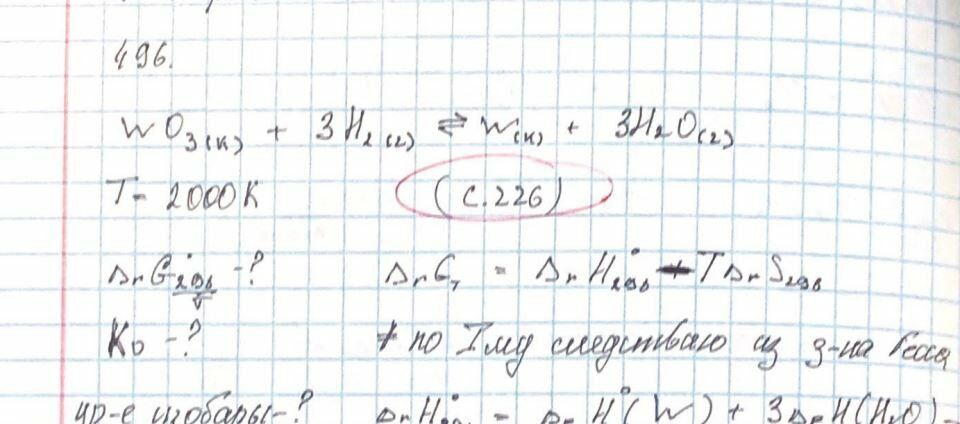 496.
WO₃(к) + 3H₂(г) ⇌ W(к) + 3H₂O(г)
T = 2000K (с.226)
ΔrG°₂₉₈ -? ΔrGт = ΔrH°₂₉₈ - TΔrS₂₉₈
Kр -? * по I му следствию из з-на Гесса
ур-е изобары-? ΔrH°₂₉₈ = ΔfH°(W) + 3ΔfH(H₂O) -